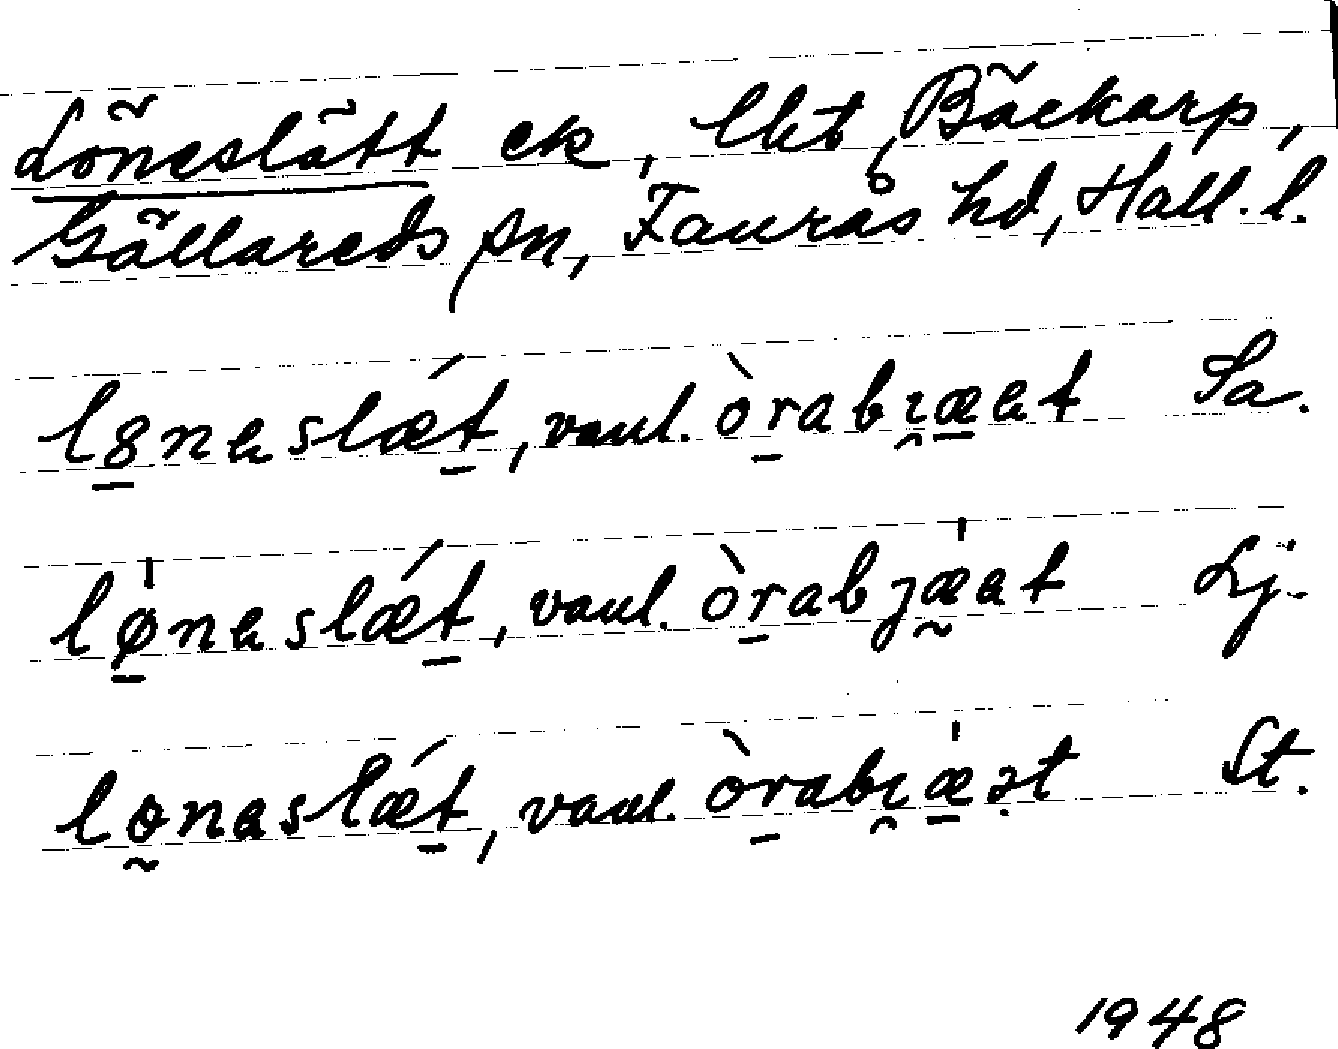 Löneslätt ek, lht, Bäckarp,
Gällareds sn, Faurås hd, Hall. l.
lønaslǽt, vanl. òrabɿæat Sa.
lønaslǽt, vanl. òrabjæat Lj.
lonaslǽt, vanl. òrabɿæət St.
1948